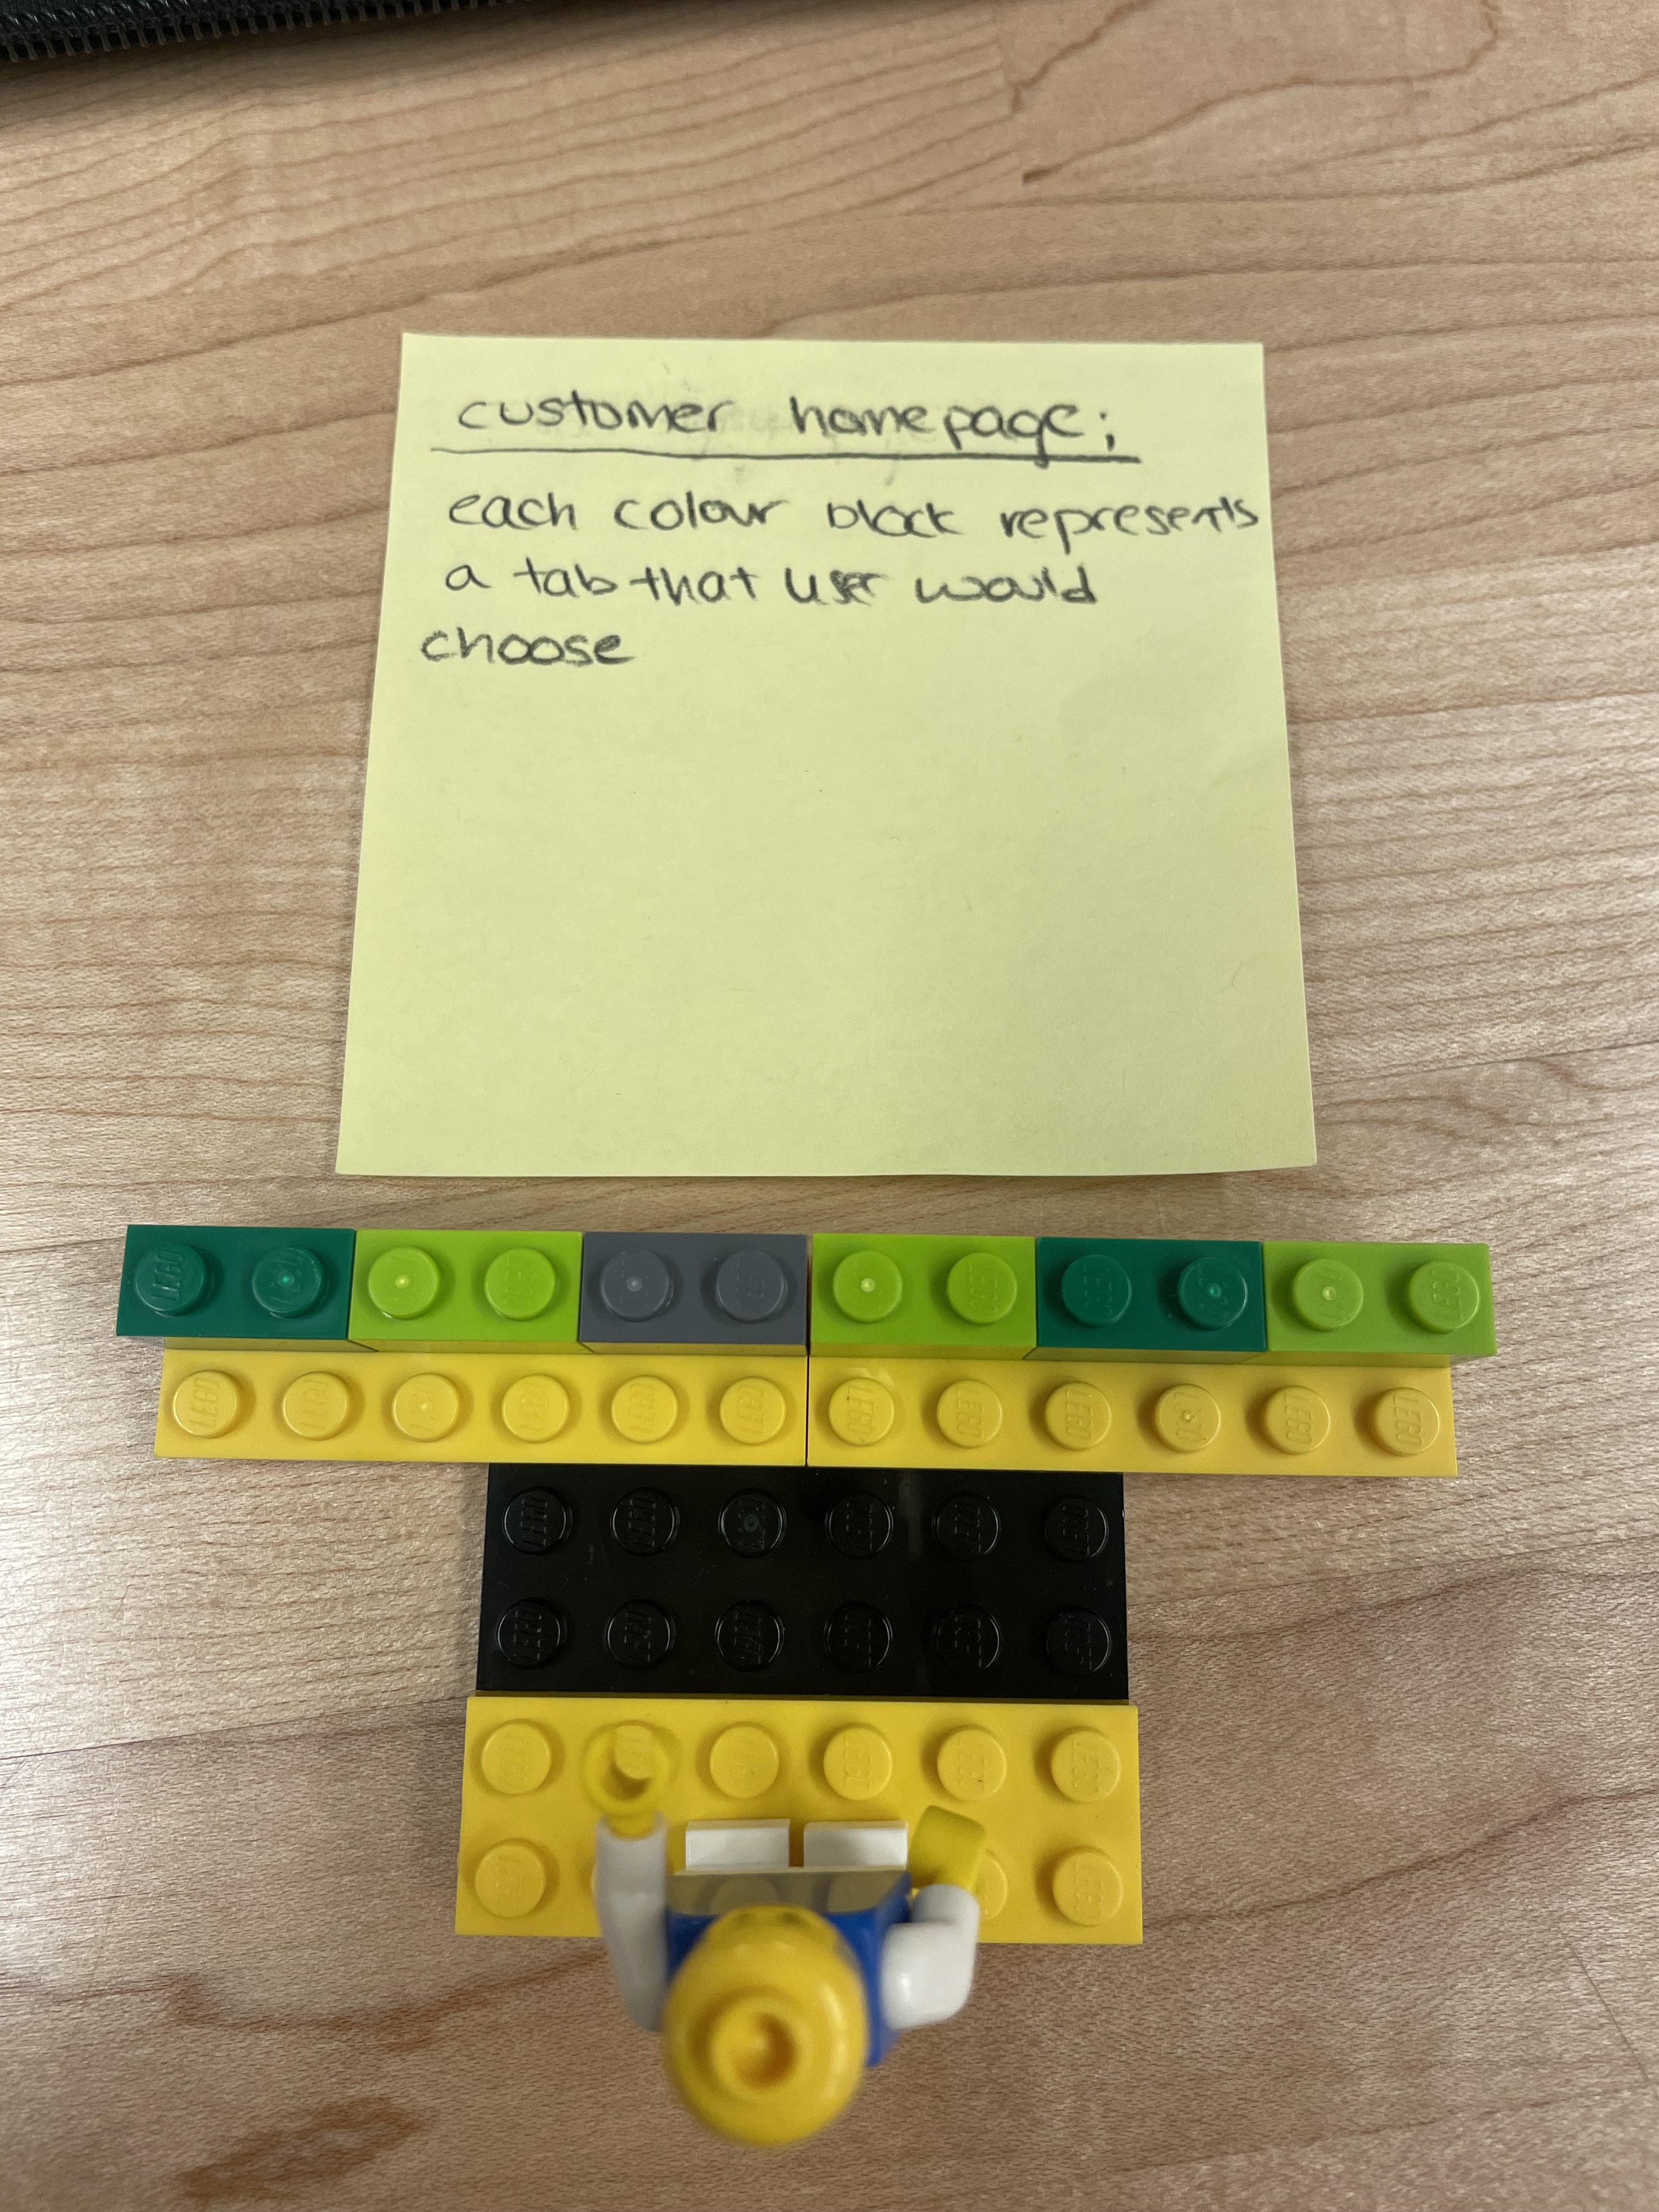 customer homepage;
each colour block represents
a tab that user would
choose